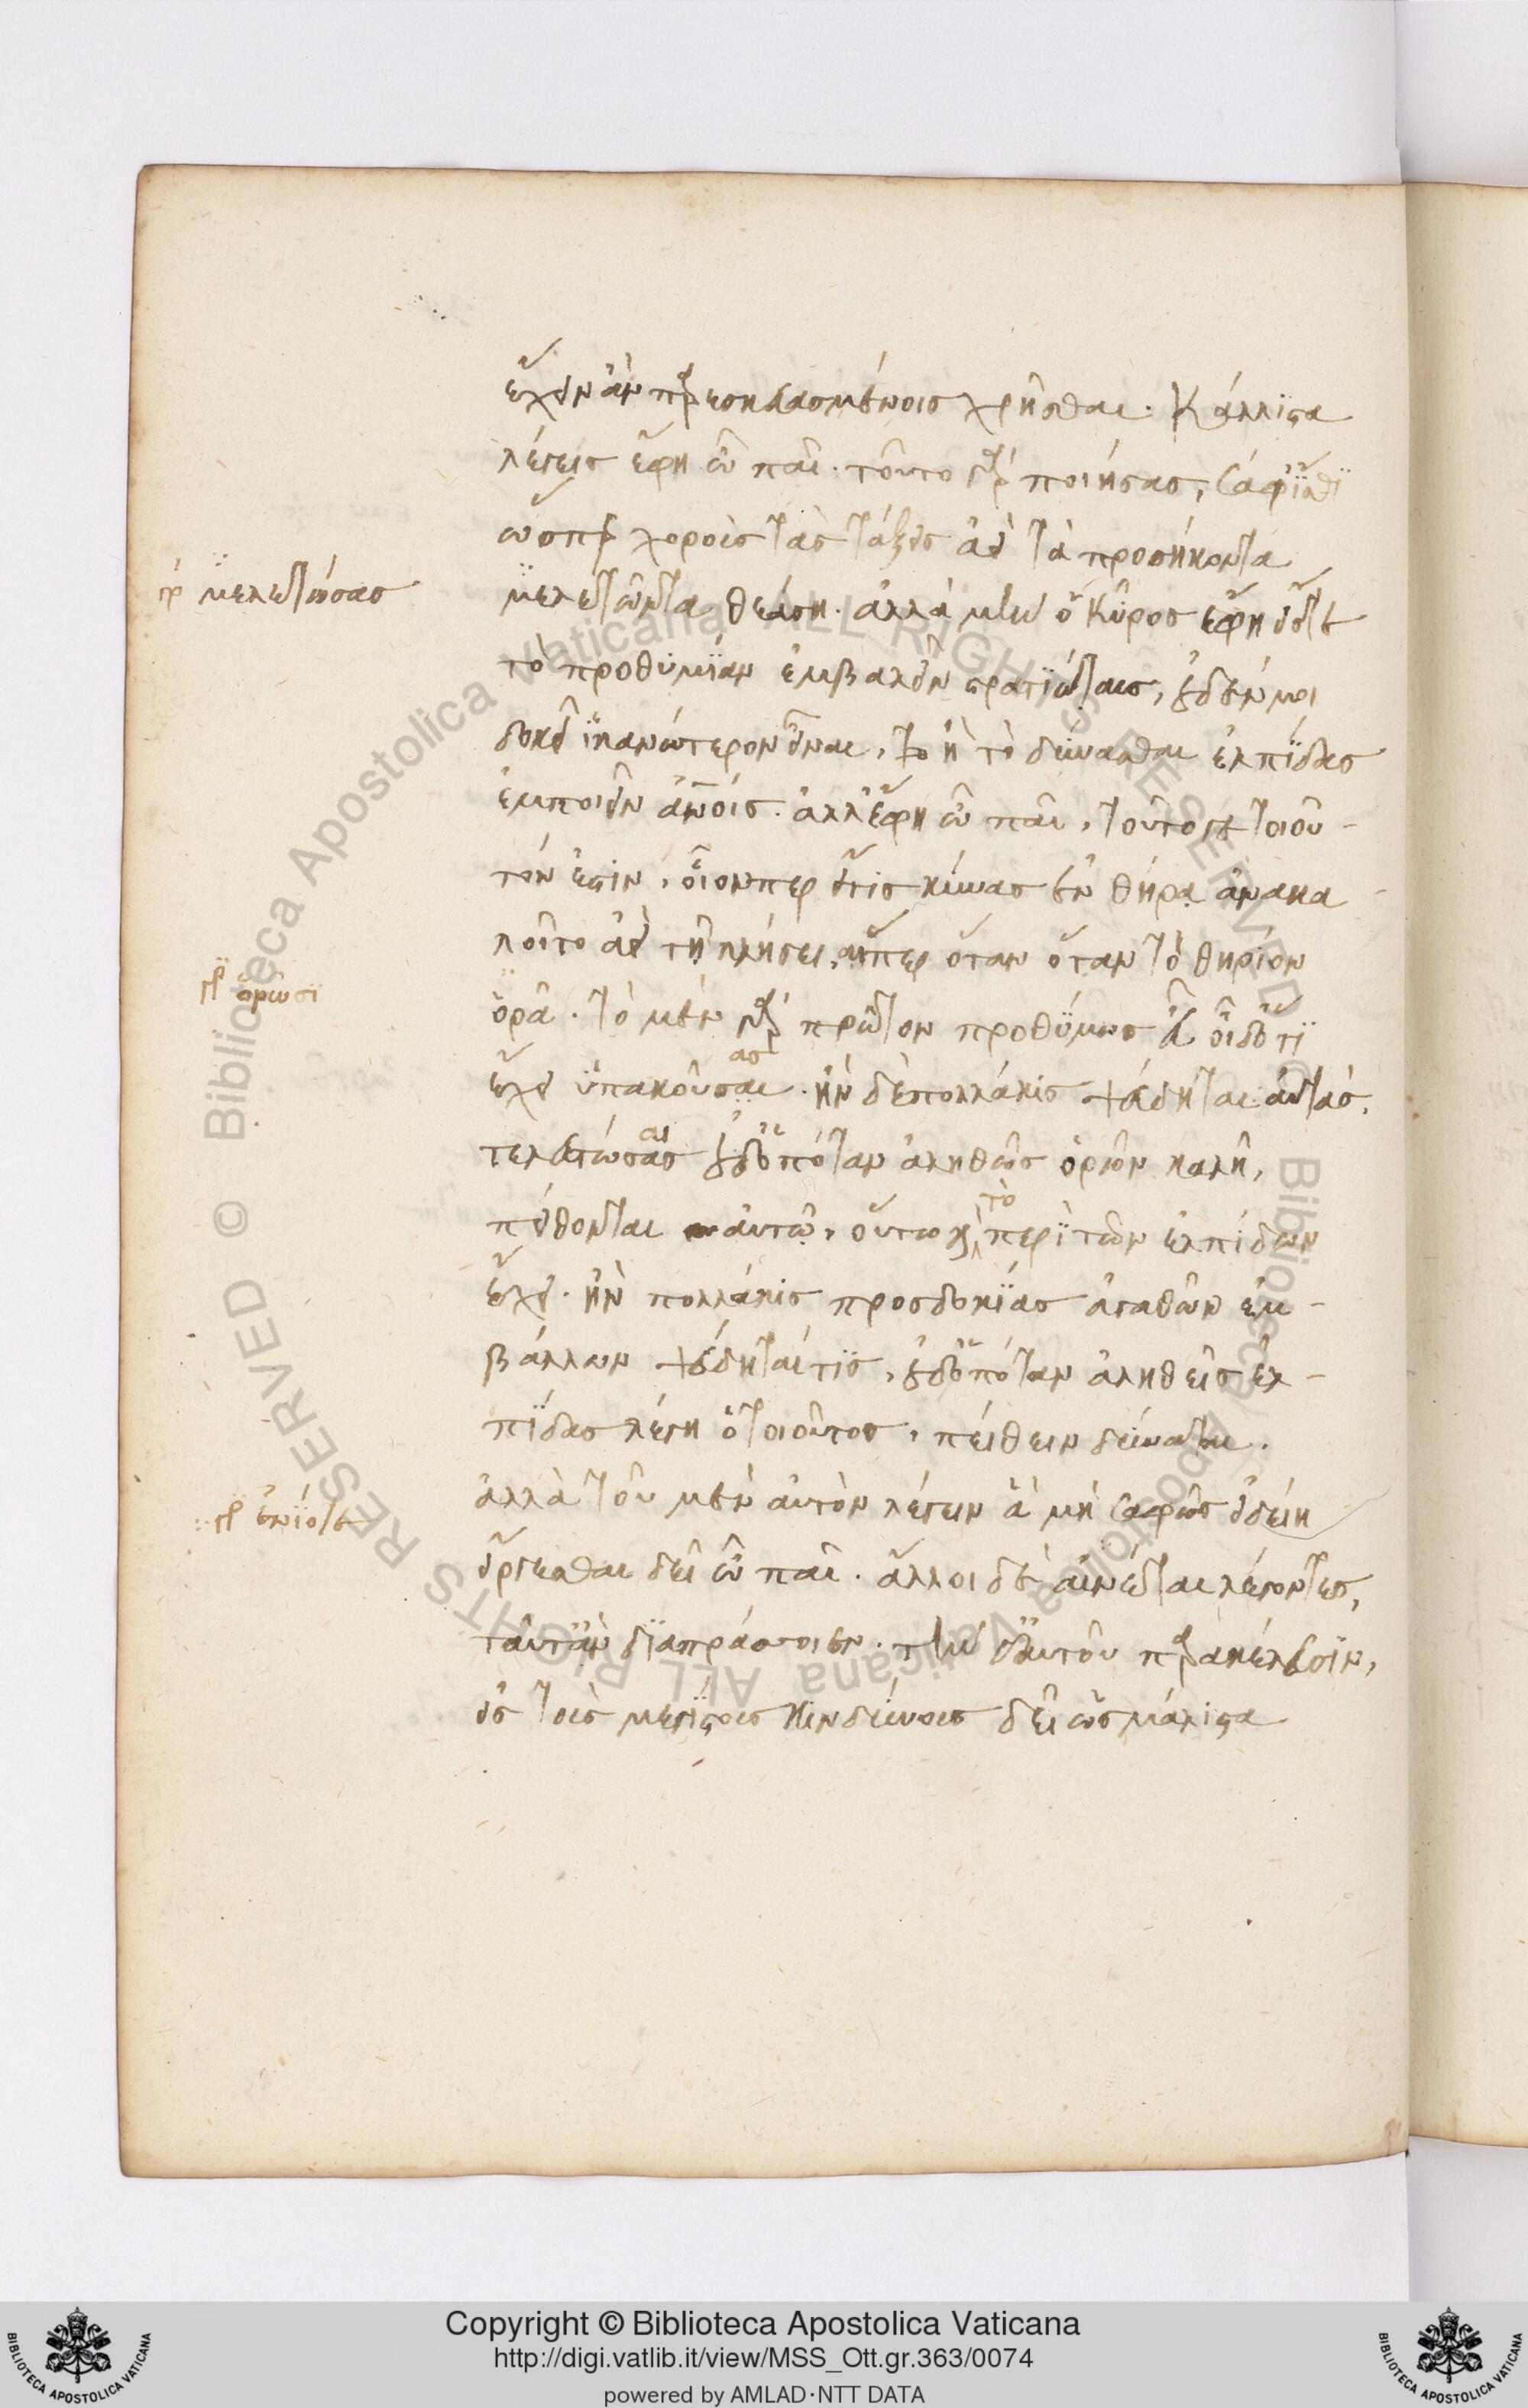 ἔχειν ἂν παρεσκευασμένοις χρῆσθαι. Κάλλιστα
λέγεις ἔφη ὦ παῖ. τοῦτο γὰρ ποιήσας, σάφ' ἴσθι
ὥσπερ χοροὺς τὰς τάξεις ἀεὶ τὰ προσήκοντα
γρ μελετώσας
μελετῶντα θεάσῃ. ἀλλὰ μὴν ὁ Κῦρος ἔφη εἴς γε
τὸ προθυμίαν ἐμβαλεῖν στρατιώταις, οὐδέν μοι
δοκεῖ ἱκανώτερον εἶναι, ἢ τὸ δύνασθαι ἐλπίδας
ἐμποιεῖν ἀνοις. ἀλλ' ἔφη ὦ παῖ, τοῦτό γε τοιοῦ-
τόν ἐστιν, οἷόνπερ εἴ τις κύνας ἐν θήρᾳ ἀνακα
λοῖτο ἀεὶ τῇ κλήσει, ᾗπερ ὅταν ὅταν τὸ θηρίον
γρ ὁρῶσι
ὁρᾷ. τὸ μὲν γὰρ πρῶτον προθύμως εὖ οἶδ' ὅτι
ἔχει ὑπακούσαι ας. ἢν δὲ πολλάκις ψεύδηται αὐτάς,
τελευτώσας αι οὐδ' ὁπόταν ἀληθῶς ὁρῶν καλῇ,
πείθονται αὐτῷ, οὕτω καὶ τὸ περὶ τῶν ἐλπίδων
ἔχει. ἢν πολλάκις προσδοκίας ἀγαθῶν ἐμ-
βάλλων ψεύδηταί τις, οὐδ' ὁπόταν ἀληθεῖς ἐλ-
πίδας λέγῃ ὁ τοιοῦτος, πείθειν δύναται.
ἀλλὰ τοῦ μὲν αὐτὸν λέγειν ἃ μὴ σαφῶς εἰδείη
γρ ἐνίοτε
εἴργεσθαι δεῖ ὦ παῖ. ἄλλοι δὲ αἰνέται λέγοντες,
ταὐτ' ἂν διαπράσσοιεν. τὴν δ' αὐτοῦ παρακέλευσιν,
εἰς τοὺς μεγίστους κινδύνους δεῖ ὡς μάλιστα
Copyright © Biblioteca Apostolica Vaticana
http://digi.vatlib.it/view/MSS_Ott.gr.363/0074
powered by AMLAD·NTT DATA